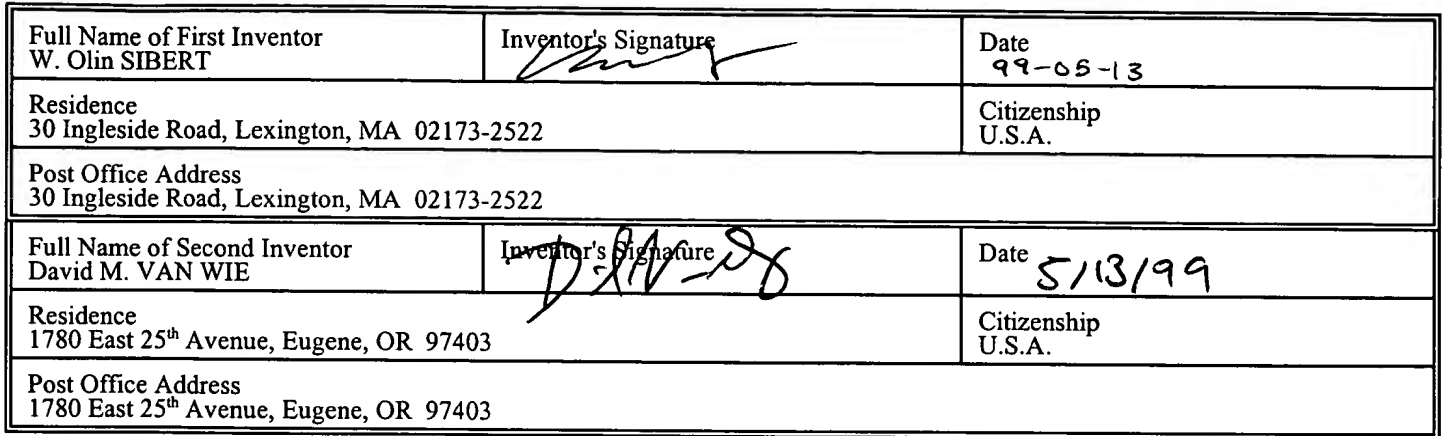 Full Name of First Inventor
W. Olin SIBERT
Inventor's Signature
Date
99-05-13
Residence
30 Ingleside Road, Lexington, MA 02173-2522
Citizenship
U.S.A.
Post Office Address
30 Ingleside Road, Lexington, MA 02173-2522
Full Name of Second Inventor
David M. VAN WIE
Inventor's Signature
Date 5/13/99
Residence
1780 East 25th Avenue, Eugene, OR 97403
Citizenship
U.S.A.
Post Office Address
1780 East 25th Avenue, Eugene, OR 97403